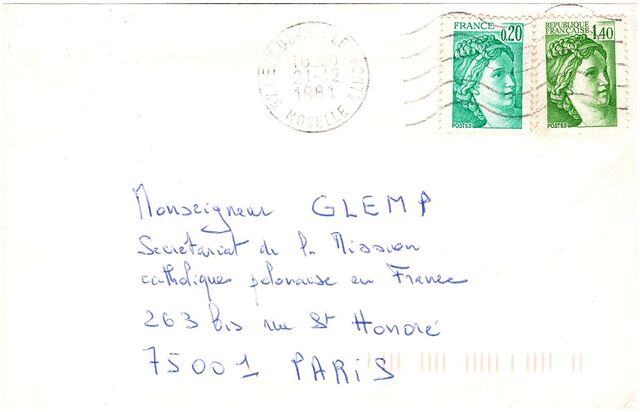 FRANCE
0,20
POSTES
REPUBLIQUE
FRANÇAISE
1,40
POSTES
21-12
1981
MOSELLE
Monseigneur GLEMP
Secrétariat de la Mission
catholique polonaise en France
263 bis rue St Honoré
75001 PARIS